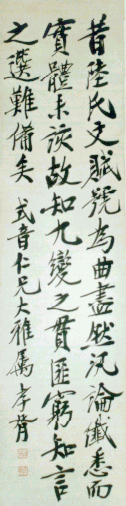 昔陸氏文賦號為曲盡然汎論纖悉而
實體未該故知九變之貫匪窮知言
之選難備矣 式音仁兄大雅屬 孝胥